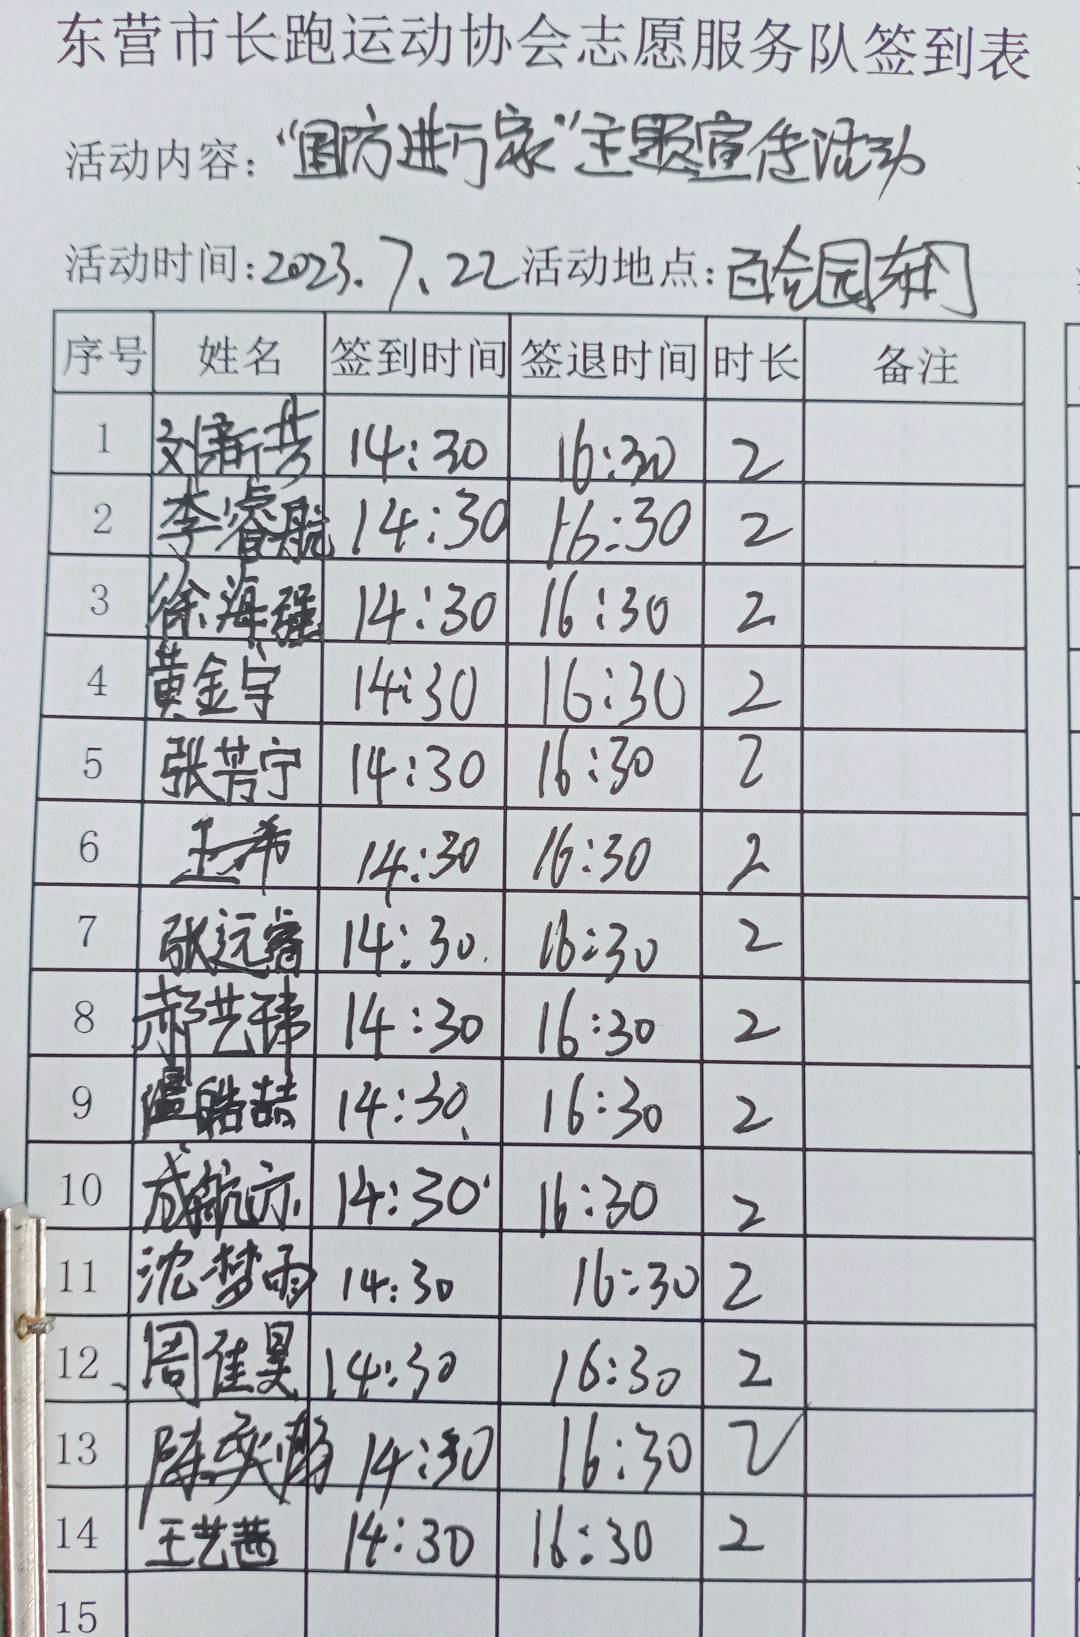 东营市长跑运动协会志愿服务队签到表
活动内容：“国防进行家”主题宣传活动
活动时间：2023.7.22 活动地点：百合园东门
序号 姓名 签到时间 签退时间 时长 备注
1 刘新芳 14:30 16:30 2
2 李睿航 14:30 16:30 2
3 徐海强 14:30 16:30 2
4 黄金宇 14:30 16:30 2
5 张芳宁 14:30 16:30 2
6 王希 14:30 16:30 2
7 张远睿 14:30 16:30 2
8 郝艺玮 14:30 16:30 2
9 温皓喆 14:30 16:30 2
10 成航亦 14:30 16:30 2
11 沈梦雨 14:30 16:30 2
12 周佳昊 14:30 16:30 2
13 陈 14:30 16:30 2
14 王艺茜 14:30 16:30 2
15